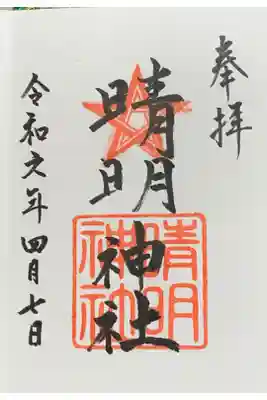 奉拝
晴明神社
晴明神社
令和六年四月七日